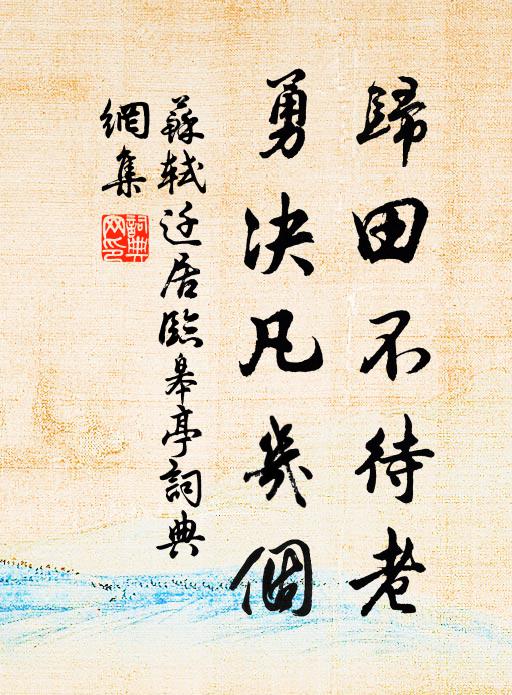 歸田不待老
勇決凡幾個
蘇軾迁居臨皋亭詞典
網集
詞典
网印